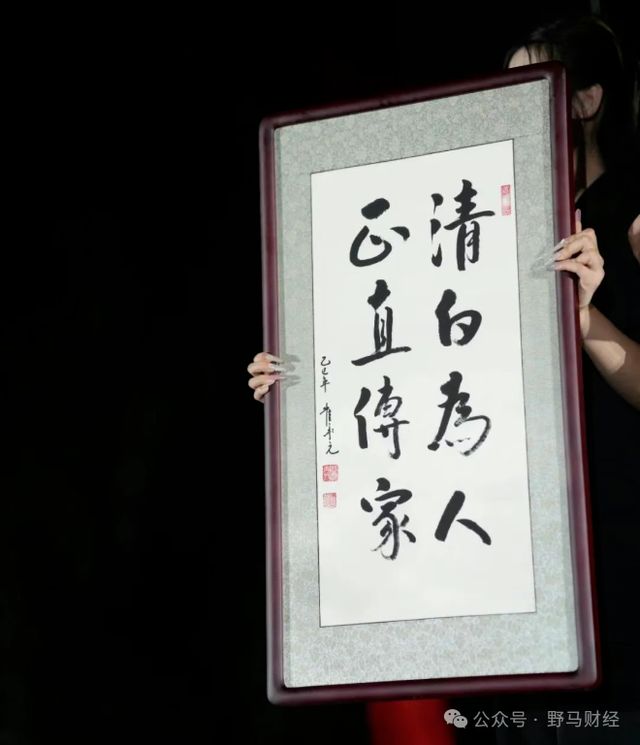 清白為人
正直傳家
乙巳年 崔永元
公众号 · 野马财经